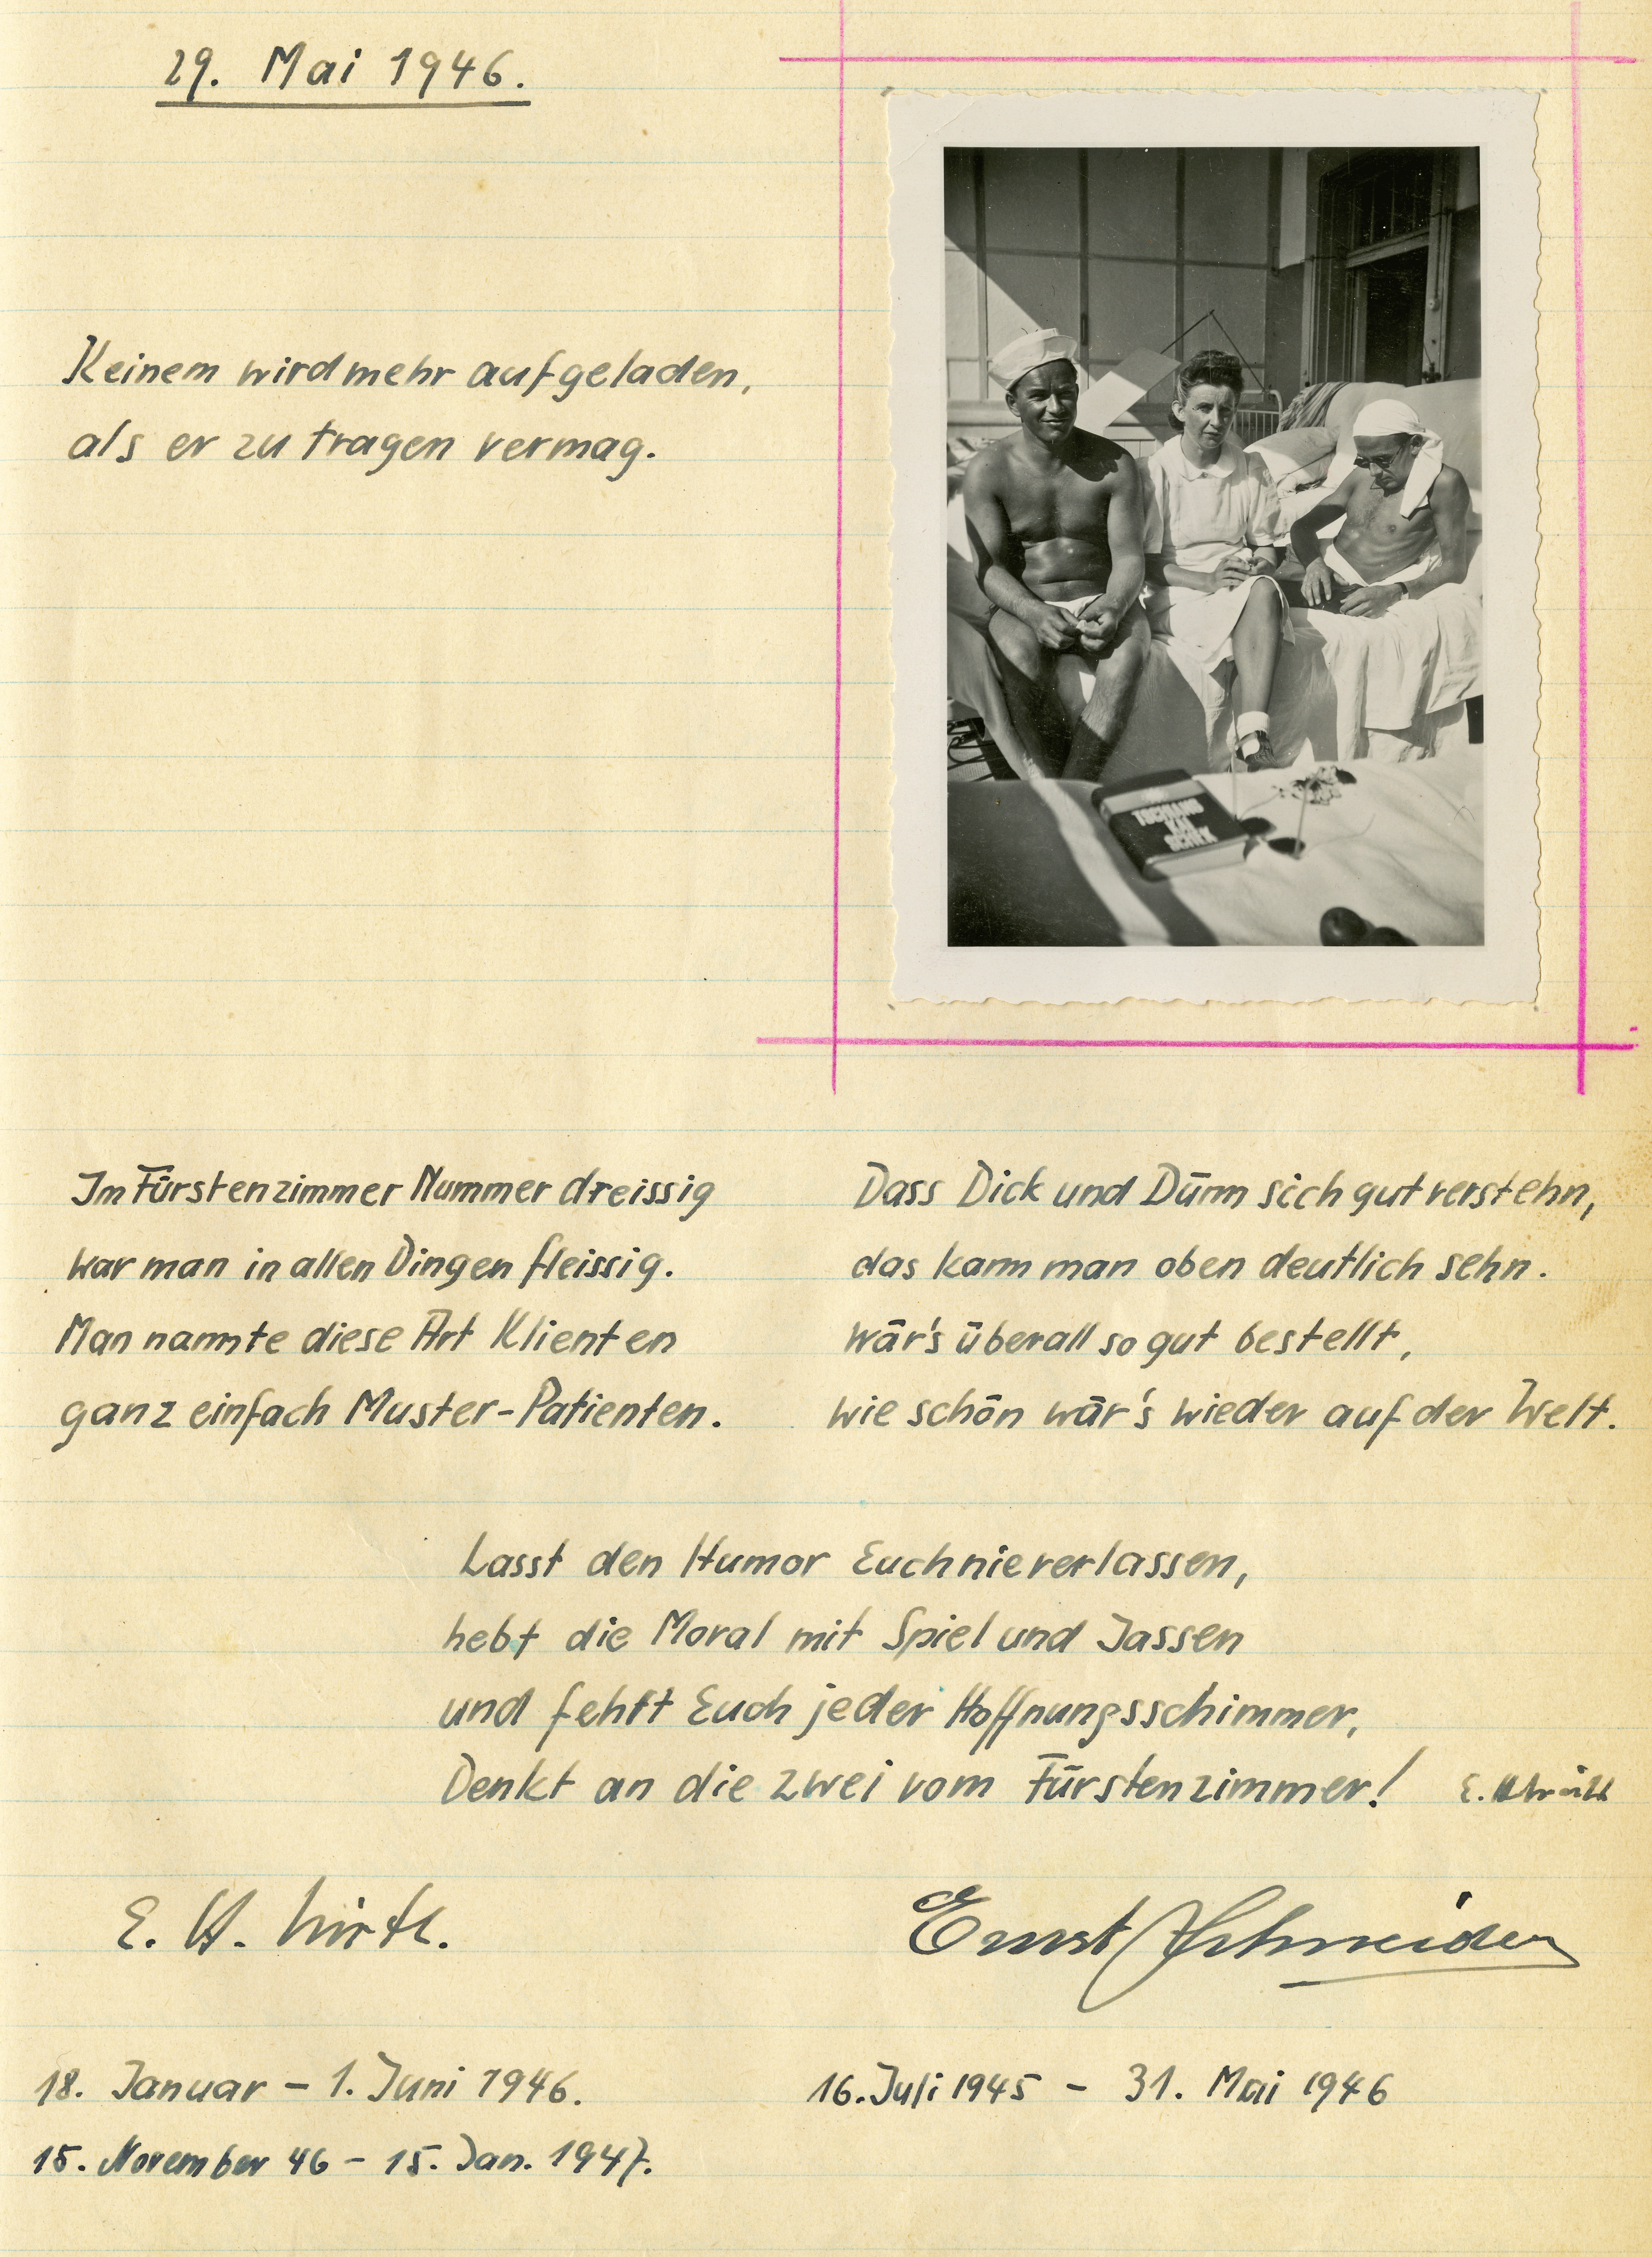 29. Mai 1946.
Keinem wird mehr aufgeladen,
als er zu tragen vermag.
Im Fürstenzimmer Nummer dreissig
war man in allen Dingen fleissig.
Man nannte diese Art Klienten
ganz einfach Muster-Patienten.
Dass Dick und Dünn sich gut verstehn,
das kann man oben deutlich sehn.
Wär's überall so gut bestellt,
wie schön wär's wieder auf der Welt.
Lasst den Humor Euch nie verlassen,
hebt die Moral mit Spiel und Jassen
und fehlt Euch jeder Hoffnungsschimmer,
Denkt an die zwei vom Fürstenzimmer!
E.
E. H. Wirth.
Ernst Schneider
18. Januar – 1. Juni 1946.
15. November 46 – 15. Jan. 1947.
16. Juli 1945 – 31. Mai 1946